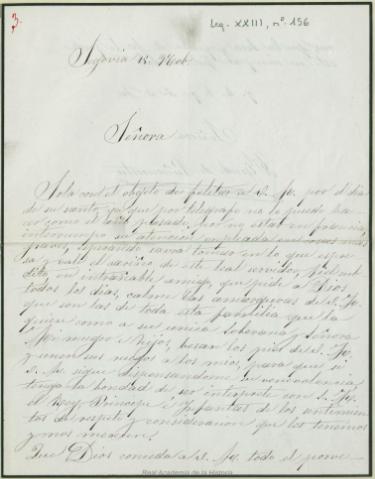 3.
Leg. XXIII, n.º 156
Segovia
Señora
Solo con el objeto de felicitar a S. M. por el dia
de su santo, ya que por telegrafo no lo puedo ha-
cer como el año pasado, por no estar en francia,
interrumpo su atencion empleada en cosas mas
graves, esperando sirva tomar en lo que espre-
sa y vale el cariño de este leal servidor,
que pide a Dios
todos los dias, calme las amarguras de S. M.
que son las de toda esta familia que la
quiere como a su unica Soberana y Señora
Mi muger e hijos, besan los pies de S. M.
y unen sus ruegos a los mios, para que si
S. M. sigue dispensandome su benevolencia
tenga la bondad de ser interprete con S. M.
el Rey Principe e Infantas de los sentimien-
tos de respeto y consideracion que les tenemos
y nos merecen.
Que Dios conceda a S. M. todo el porve-
Real Academia de la Historia